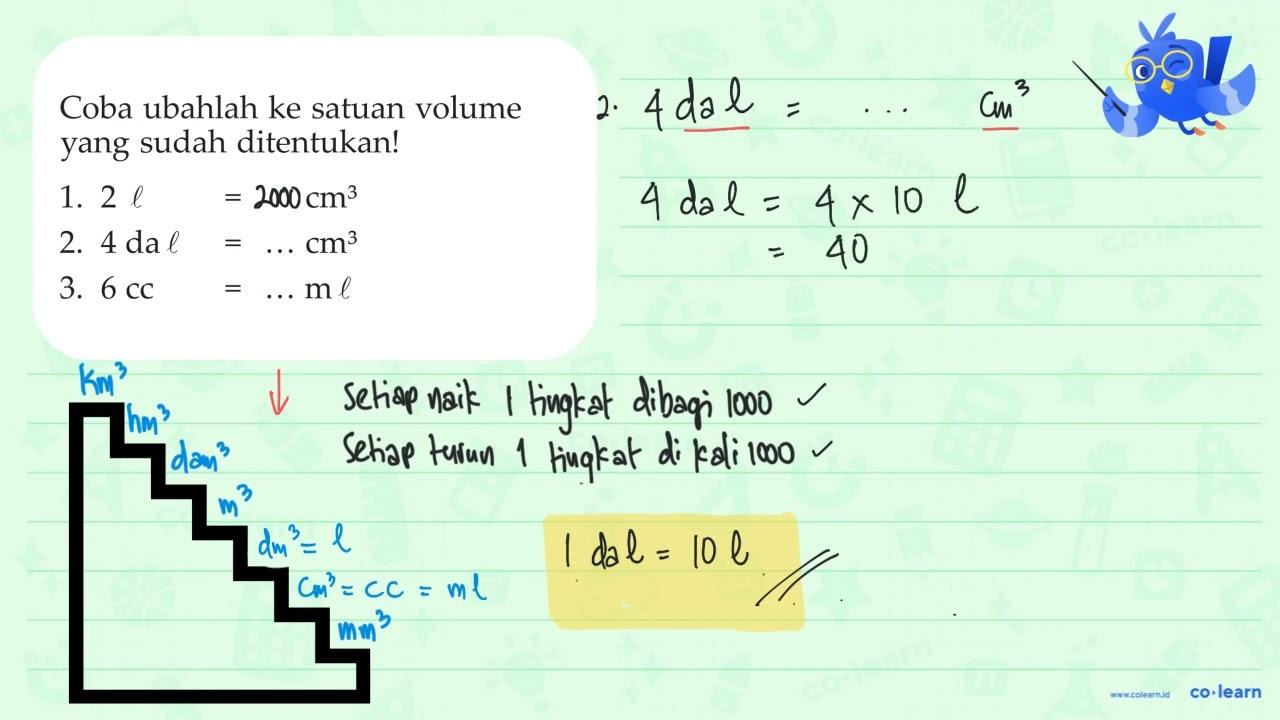 Coba ubahlah ke satuan volume
yang sudah ditentukan!
1. 2 ℓ = 2000 cm³
2. 4 da ℓ = ... cm³
3. 6 cc = ... m ℓ
2. 4 dal = ... cm³
4 dal = 4 x 10 l
= 40
km³
hm³
dam³
m³
dm³ = l
cm³ = cc = ml
mm³
setiap naik 1 tingkat dibagi 1000 ✓
setiap turun 1 tingkat di kali 1000 ✓
1 dal = 10 l
co·learn
co·learn
co·learn
www.colearn.id co·learn